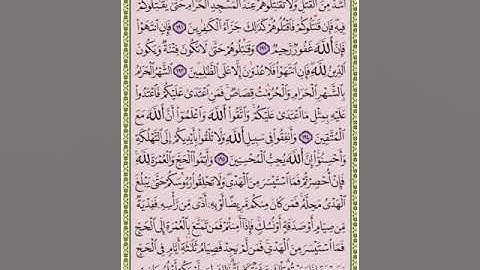 أَشَدُّ مِنَ ٱلْقَتْلِ وَلَا تُقَٰتِلُوهُمْ عِندَ ٱلْمَسْجِدِ ٱلْحَرَامِ حَتَّىٰ يُقَٰتِلُوكُمْ
فِيهِ فَإِن قَٰتَلُوكُمْ فَٱقْتُلُوهُمْ كَذَٰلِكَ جَزَآءُ ٱلْكَٰفِرِينَ ١٩١ فَإِنِ ٱنتَهَوْا۟
فَإِنَّ ٱللَّهَ غَفُورٌ رَّحِيمٌ ١٩٢ وَقَٰتِلُوهُمْ حَتَّىٰ لَا تَكُونَ فِتْنَةٌ وَيَكُونَ
ٱلدِّينُ لِلَّهِ فَإِنِ ٱنتَهَوْا۟ فَلَا عُدْوَٰنَ إِلَّا عَلَى ٱلظَّٰلِمِينَ ١٩٣ ٱلشَّهْرُ ٱلْحَرَامُ
بِٱلشَّهْرِ ٱلْحَرَامِ وَٱلْحُرُمَٰتُ قِصَاصٌ فَمَنِ ٱعْتَدَىٰ عَلَيْكُمْ فَٱعْتَدُوا۟
عَلَيْهِ بِمِثْلِ مَا ٱعْتَدَىٰ عَلَيْكُمْ وَٱتَّقُوا۟ ٱللَّهَ وَٱعْلَمُوٓا۟ أَنَّ ٱللَّهَ مَعَ
ٱلْمُتَّقِينَ ١٩٤ وَأَنفِقُوا۟ فِى سَبِيلِ ٱللَّهِ وَلَا تُلْقُوا۟ بِأَيْدِيكُمْ إِلَى ٱلتَّهْلُكَةِ
وَأَحْسِنُوٓا۟ إِنَّ ٱللَّهَ يُحِبُّ ٱلْمُحْسِنِينَ ١٩٥ وَأَتِمُّوا۟ ٱلْحَجَّ وَٱلْعُمْرَةَ لِلَّهِ
فَإِنْ أُحْصِرْتُمْ فَمَا ٱسْتَيْسَرَ مِنَ ٱلْهَدْىِ وَلَا تَحْلِقُوا۟ رُءُوسَكُمْ حَتَّىٰ يَبْلُغَ
ٱلْهَدْىُ مَحِلَّهُۥ فَمَن كَانَ مِنكُم مَّرِيضًا أَوْ بِهِۦٓ أَذًى مِّن رَّأْسِهِۦ فَفِدْيَةٌ
مِّن صِيَامٍ أَوْ صَدَقَةٍ أَوْ نُسُكٍ فَإِذَآ أَمِنتُمْ فَمَن تَمَتَّعَ بِٱلْعُمْرَةِ إِلَى ٱلْحَجِّ
فَمَا ٱسْتَيْسَرَ مِنَ ٱلْهَدْىِ فَمَن لَّمْ يَجِدْ فَصِيَامُ ثَلَٰثَةِ أَيَّامٍ فِى ٱلْحَجِّ